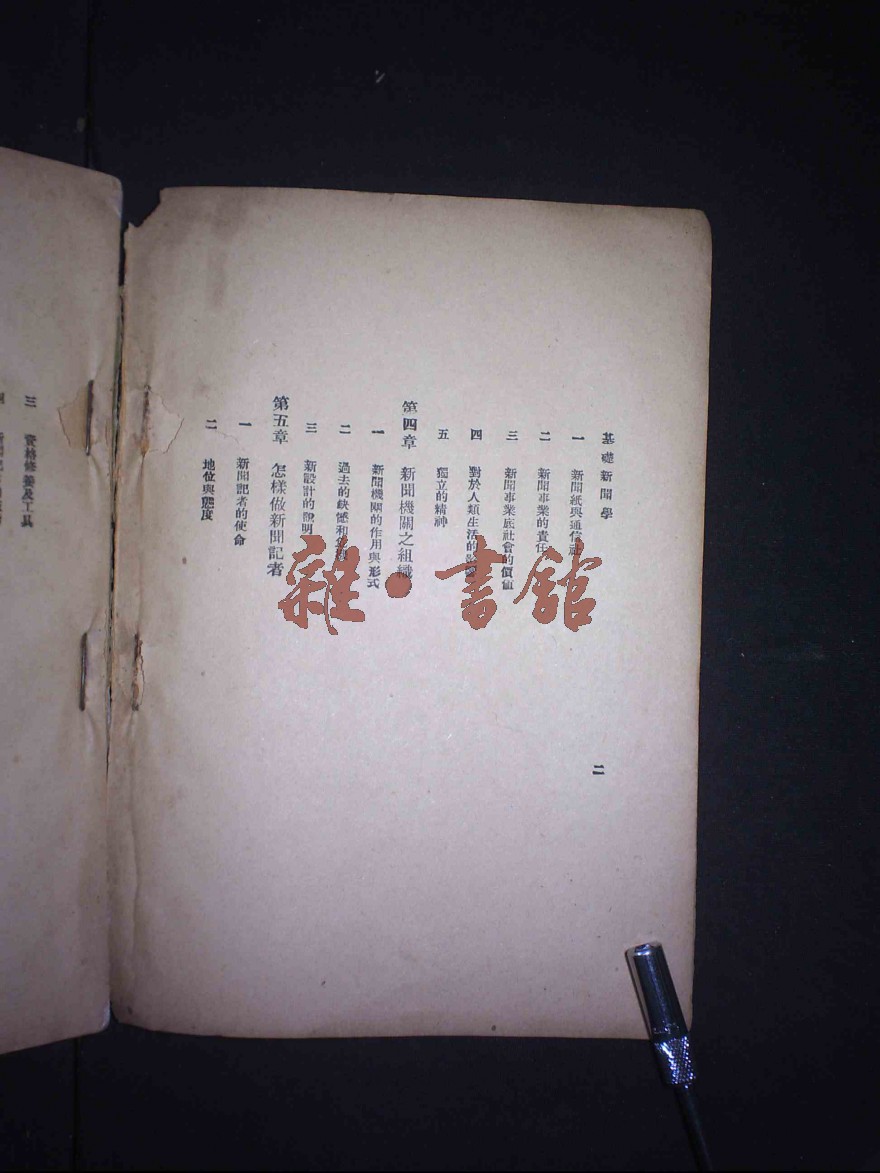 基礎新聞學
一 新聞紙與通信社
二 新聞事業的責任
三 新聞事業底社會的價值
四 對於人類生活的影響
五 獨立的精神
第四章 新聞機關之組織
一 新聞機關的作用與形式
二 過去的缺憾和
三 新設計的說明
第五章 怎樣做新聞記者
一 新聞記者的使命
二 地位與態度
二
三 資格修養及工具
雜·書館